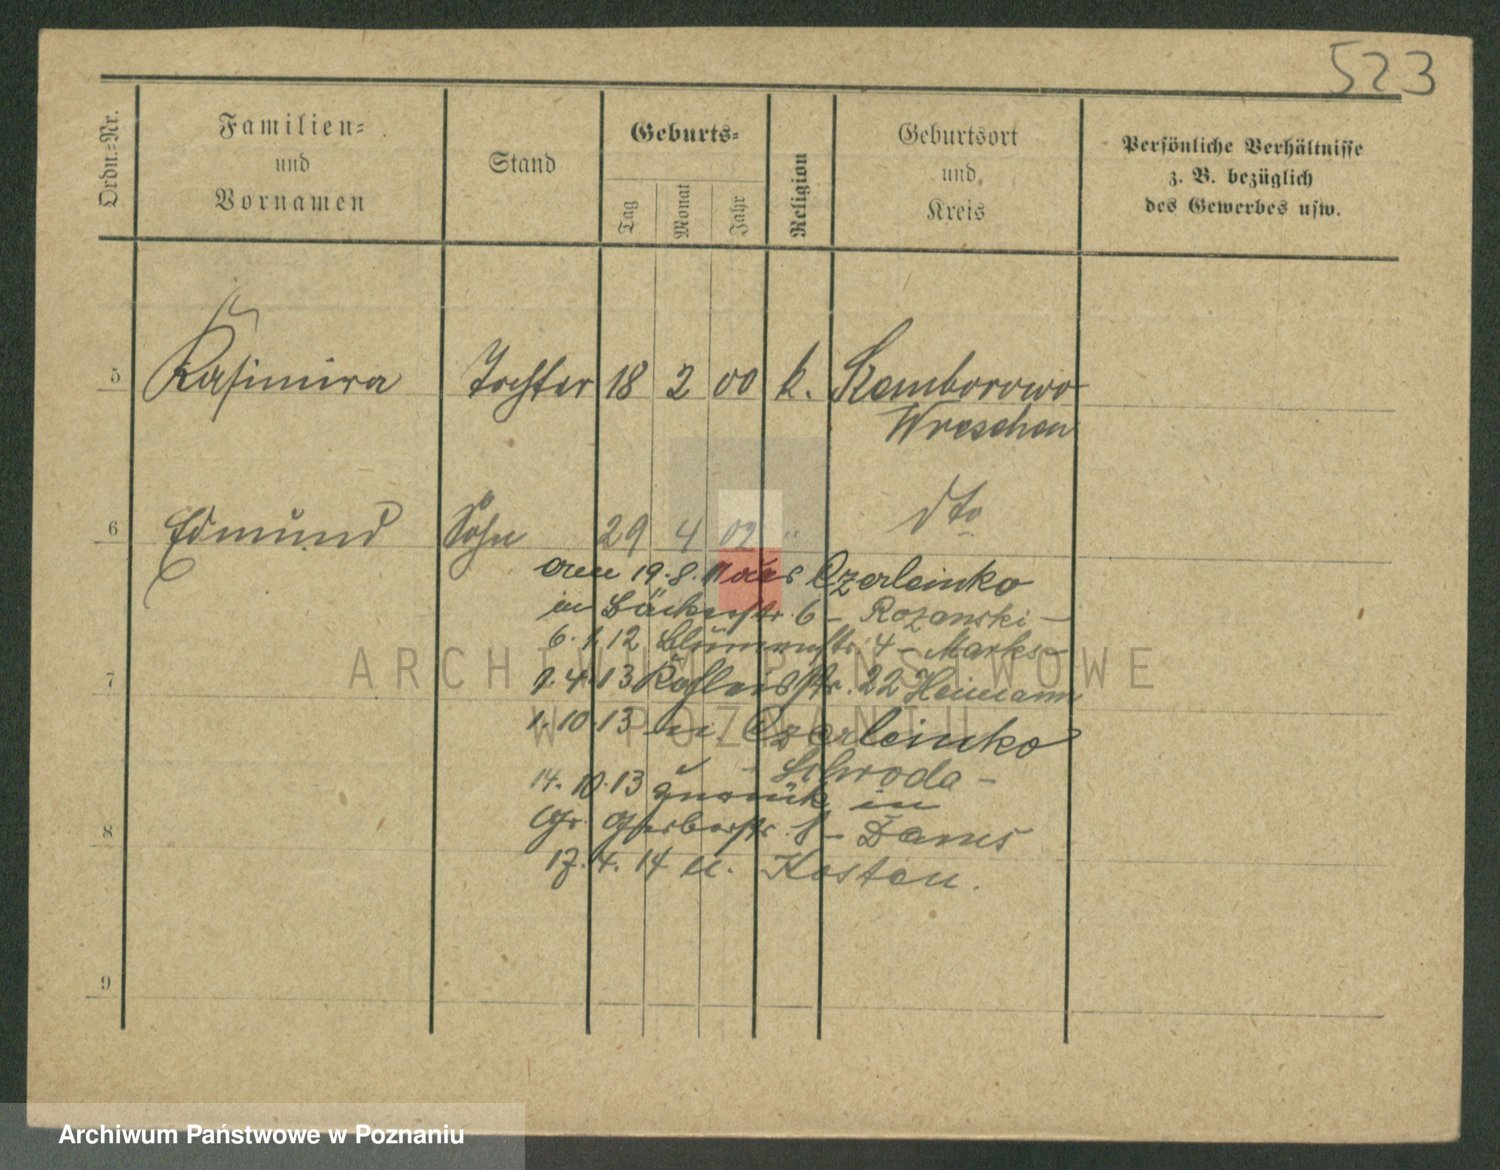 523
Ordn.-Nr.
Familien-
und
Vornamen
Stand
Geburts-
Tag
Monat
Jahr
Religion
Geburtsort
und
Kreis
Persönliche Verhältnisse
z. B. bezüglich
des Gewerbes usw.
5 Kasimira Tochter 18 2 00 k. Kemborowo
Wreschen
6 Edmund Sohn 29 4 02 " dto
am 19.8.11 aus Czerleinko
in Bäckerstr. 6 – Rozanski –
6.1.12 Blumenstr. 4 – Marks –
7
1.4.13 22 Heimann
1.10.13 in Czerleinko
– Schroda –
14.10.13 zurück in
8
Gr. Gerberstr. 8 – Dams
17.4.14 n. Kosten.
9
ARCHIWUM PAŃSTWOWE
W POZNANIU
Archiwum Państwowe w Poznaniu